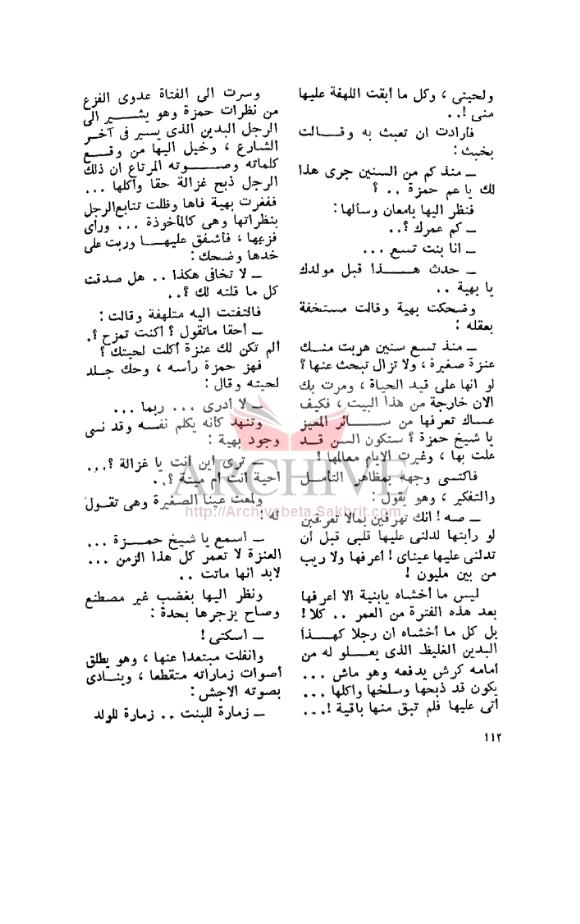 ولحيتى ، وكل ما أبقت اللهفة عليها
منى !..
فأرادت ان تعبث به وقالت
بخبث :
ــ منذ كم من السنين جرى هذا
لك يا عم حمزة .. ؟
فنظر اليها بامعان وسألها :
ــ كم عمرك ؟..
ــ انا بنت تسع ...
ــ حدث هذا قبل مولدك
يا بهية ..
وضحكت بهية وقالت مستخفة
بعقله :
ــ منذ تسع سنين هربت منك
عنزة صغيرة ، ولا تزال تبحث عنها ؟
لو انها على قيد الحياة ، ومرت بك
الان خارجة من هذا البيت ، فكيف
عساك تعرفها من سائر المعيز
يا شيخ حمزة ؟ ستكون السن قد
علت بها ، وغيرت الايام معالمها !
فاكتسى وجهه بمظاهر التأمل
والتفكير ، وهو يقول :
ــ صه ! انك تهرفين بمالا تعرفين
لو رأيتها لدلنى عليها قلبى قبل أن
تدلنى عليها عيناى ! أعرفها ولا ريب
من بين مليون !
ليس ما أخشاه يابنية الا أعرفها
بعد هذه الفترة من العمر .. كلا !
بل كل ما أخشاه ان رجلا كهذا
البدين الغليظ الذى يعلو له من
أمامه كرش يدفعه وهو ماش ...
يكون قد ذبحها وسلخها وأكلها ...
أتى عليها فلم تبق منها باقية !...
وسرت الى الفتاة عدوى الفزع
من نظرات حمزة وهو يشير الى
الرجل البدين الذى يسير فى آخر
الشارع ، وخيل اليها من وقع
كلماته وصوته المرتاع ان ذلك
الرجل ذبح غزالة حقا وأكلها ...
ففغرت بهية فاها وظلت تتابع الرجل
بنظراتها وهى كالمأخوذة ... ورأى
فزعها ، فأشفق عليها وربت على
خدها وضحك :
ــ لا تخافى هكذا .. هل صدقت
كل ما قلته لك ؟..
فالتفتت اليه متلهفة وقالت :
ــ أحقا ماتقول ؟ أكنت تمزح ؟.
ألم تكن لك عنزة أكلت لحيتك ؟
فهز حمزة رأسه ، وحك جلد
لحيته وقال :
ــ لا أدرى ... ربما ...
وتنهد كأنه يكلم نفسه وقد نسى
وجود بهية :
ــ ترى أين أنت يا غزالة ؟...
أحية أنت أم ميتة ؟..
ولمعت عينا الصغيرة وهى تقول
له :
ــ اسمع يا شيخ حمزة ...
العنزة لا تعمر كل هذا الزمن ...
لابد انها ماتت ..
ونظر اليها بغضب غير مصطنع
وصاح يزجرها بحدة :
ــ اسكتى !
وانفلت مبتعدا عنها ، وهو يطلق
أصوات زماراته متقطعا ، وينادى
بصوته الاجش :
ــ زمارة للبنت .. زمارة للولد
١١٢
ARCHIVE
http://Archivebeta.Sakhrit.com